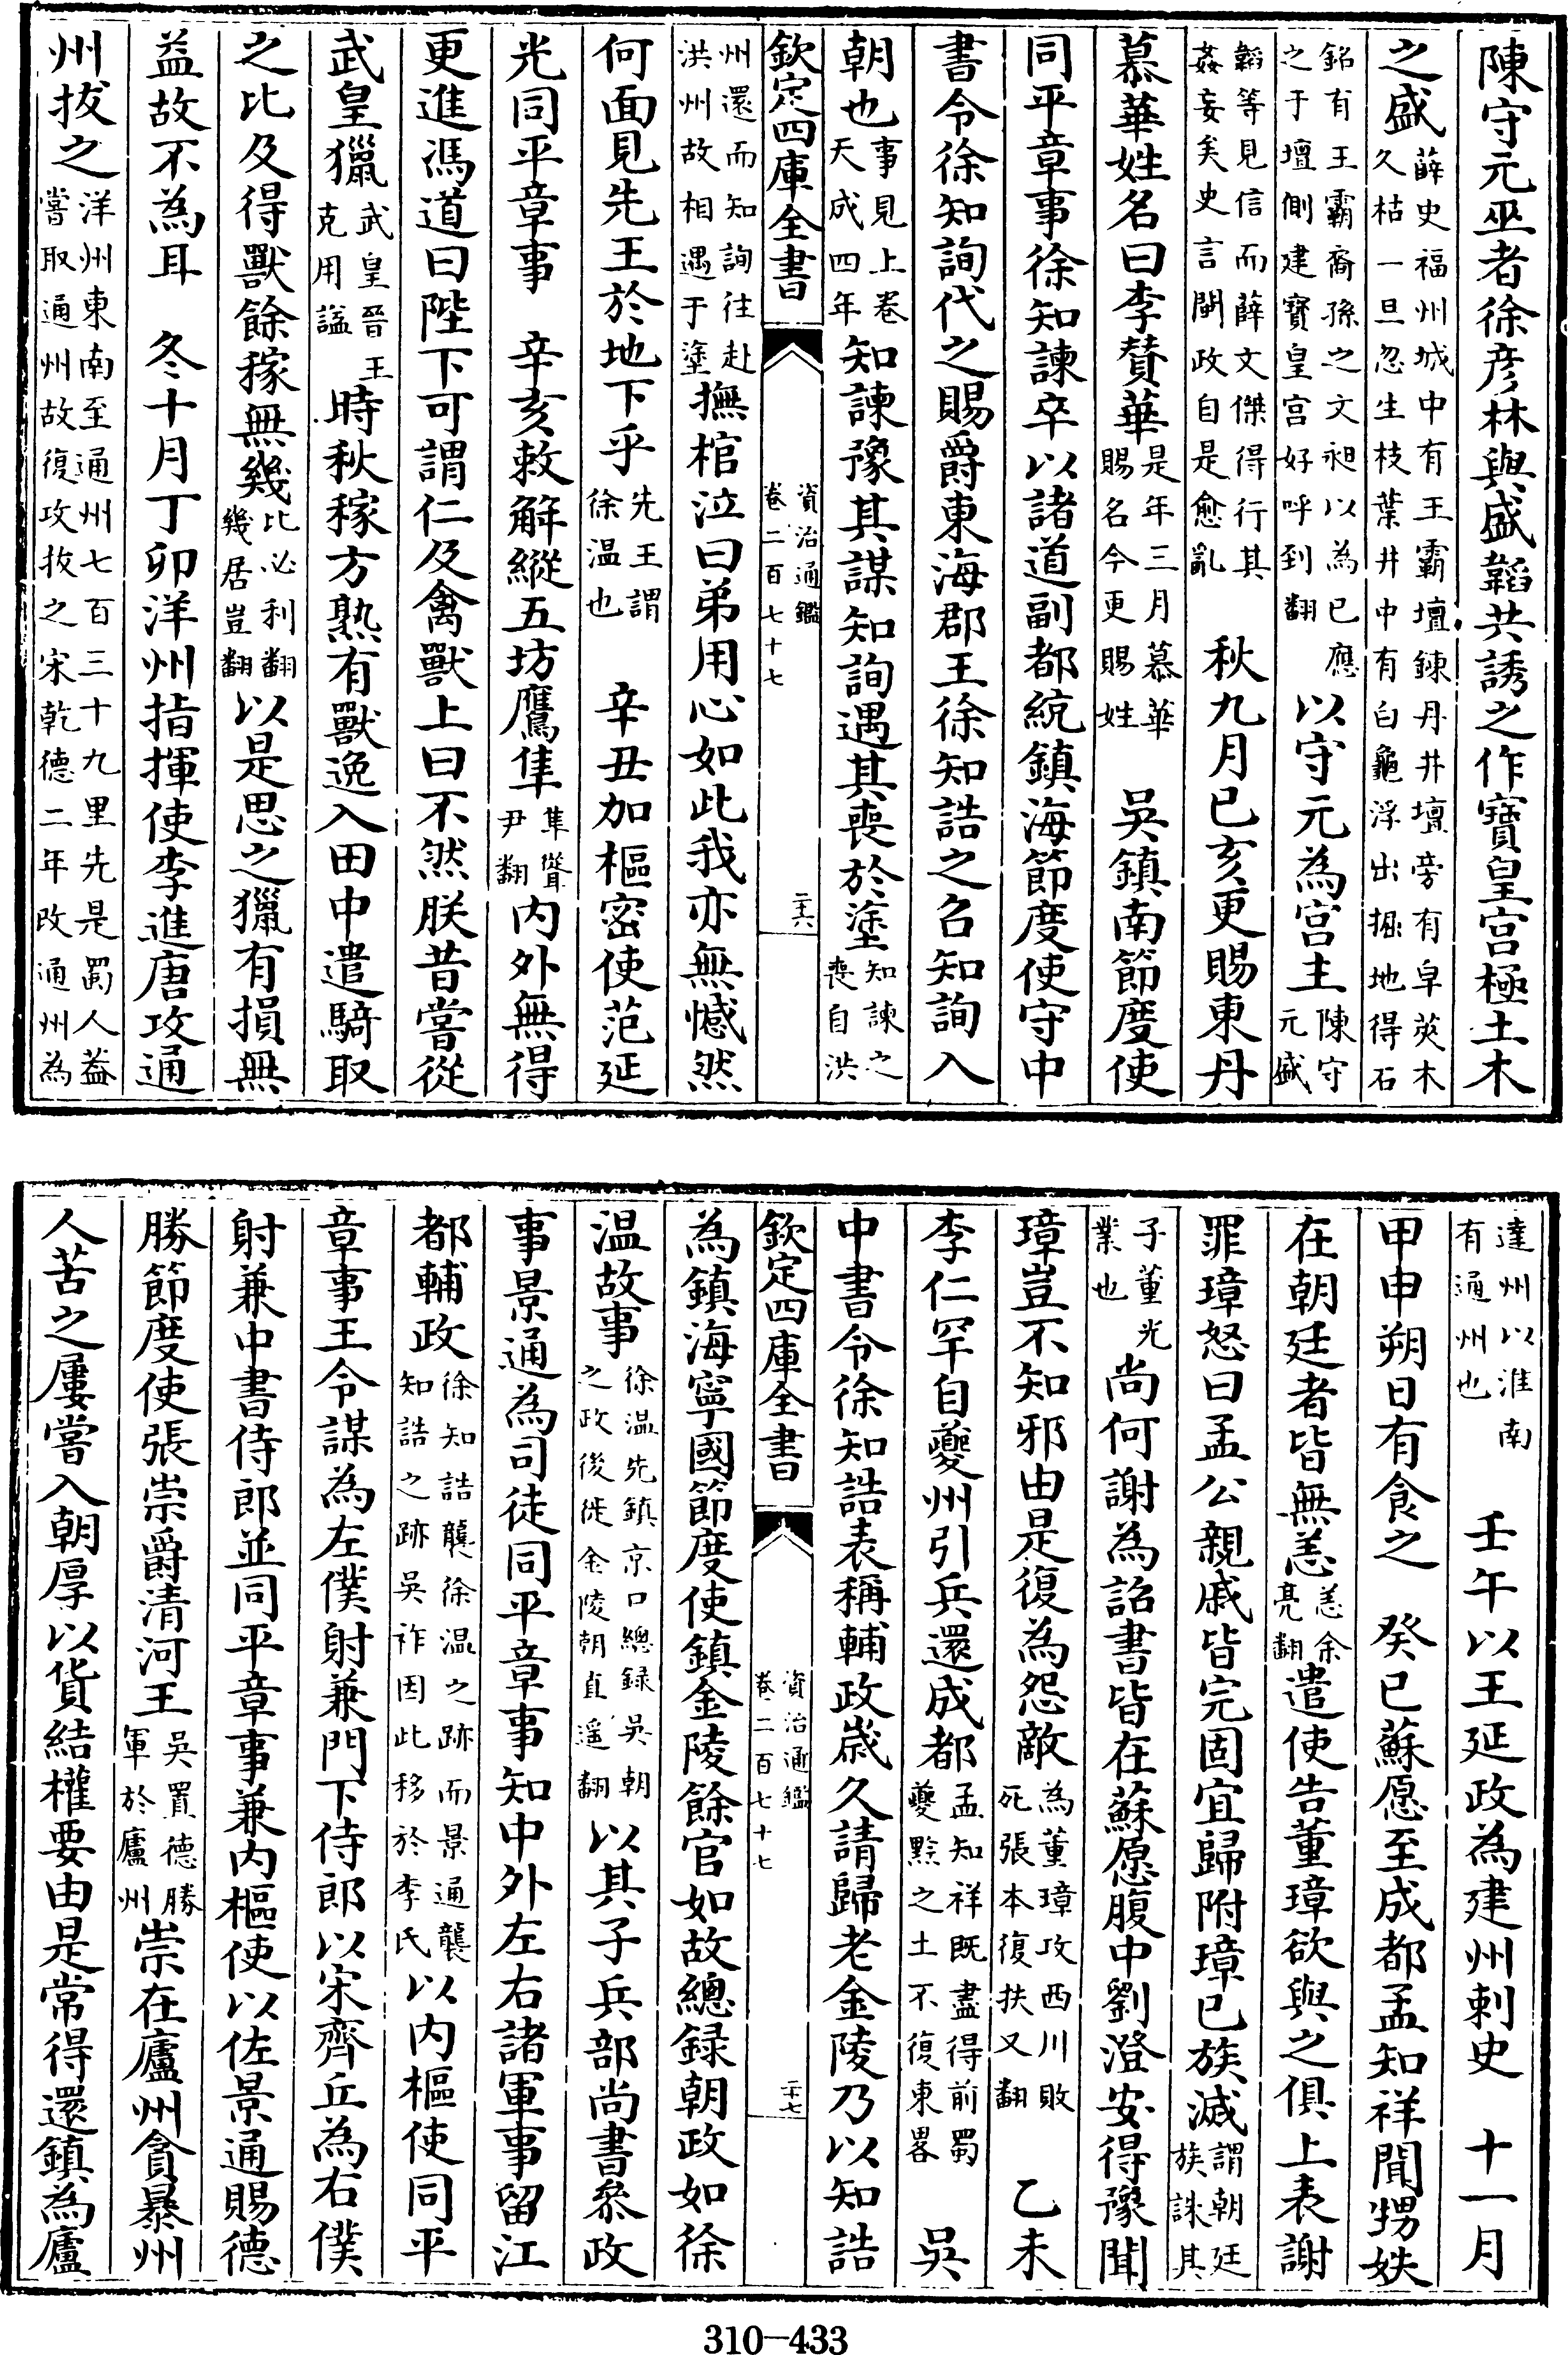 陳守元巫者徐彦林與盛韜共誘之作寶皇宮極土木
之盛薛史福州城中有王霸壇鍊丹井壇旁有皁莢木久枯一旦忽生枝葉井中有白龜浮出掘地得石
銘有王霸裔孫之文昶以為已應之于壇側建寶皇宮好呼到翻以守元為宮主陳守元盛
韜等見信而薛文傑得行其姦妄矣史言閩政自是愈亂　秋九月已亥更賜東丹
慕華姓名曰李賛華是年三月慕華賜名今更賜姓　吳鎮南節度使
同平章事徐知諫卒以諸道副都統鎮海節度使守中
書令徐知詢代之賜爵東海郡王徐知誥之召知詢入
朝也事見上卷天成四年知諫豫其謀知詢遇其喪於塗知諫之喪自洪
欽定四庫全書　資治通鑑卷二百七十七　二十六
州還而知詢往赴洪州故相遇于塗撫棺泣曰弟用心如此我亦無憾然
何面見先王於地下乎先王謂徐温也　辛丑加樞密使范延
光同平章事　辛亥敕解縱五坊鷹隼隼聳尹翻内外無得
更進馮道曰陛下可謂仁及禽獸上曰不然朕昔嘗從
武皇獵武皇晉王克用諡時秋稼方熟有獸逸入田中遣騎取
之比及得獸餘稼無幾比必利翻幾居豈翻以是思之獵有損無
益故不為耳　冬十月丁卯洋州指揮使李進唐攻通
州拔之洋州東南至通州七百三十九里先是蜀人葢嘗取通州故復攻拔之宋乾德二年改通州為
達州以淮南有通州也　壬午以王延政為建州刺史　十一月
甲申朔日有食之　癸已蘇愿至成都孟知祥聞甥妷
在朝廷者皆無恙恙余亮翻遣使告董璋欲與之俱上表謝
罪璋怒曰孟公親戚皆完固宜歸附璋已族滅謂朝廷族誅其
子董光業也尚何謝為詔書皆在蘇愿腹中劉澄安得豫聞
璋豈不知邪由是復為怨敵為董璋攻西川敗死張本復扶又翻　乙未
李仁罕自夔州引兵還成都孟知祥既盡得前蜀夔黔之土不復東畧　吳
中書令徐知誥表稱輔政歲久請歸老金陵乃以知誥
欽定四庫全書　資治通鑑卷二百七十七　二十七
為鎮海寧國節度使鎮金陵餘官如故總録朝政如徐
温故事徐温先鎮京口總録吳朝之政後徙金陵朝直遥翻以其子兵部尚書叅政
事景通為司徒同平章事知中外左右諸軍事留江
都輔政徐知誥襲徐温之跡而景通襲知誥之跡吳祚因此移於李氏以内樞使同平
章事王令謀為左僕射兼門下侍郎以宋齊丘為右僕
射兼中書侍郎並同平章事兼内樞使以佐景通賜德
勝節度使張崇爵清河王吳置德勝軍於廬州崇在廬州貪暴州
人苦之屢嘗入朝厚以貨結權要由是常得還鎮為廬
310-433